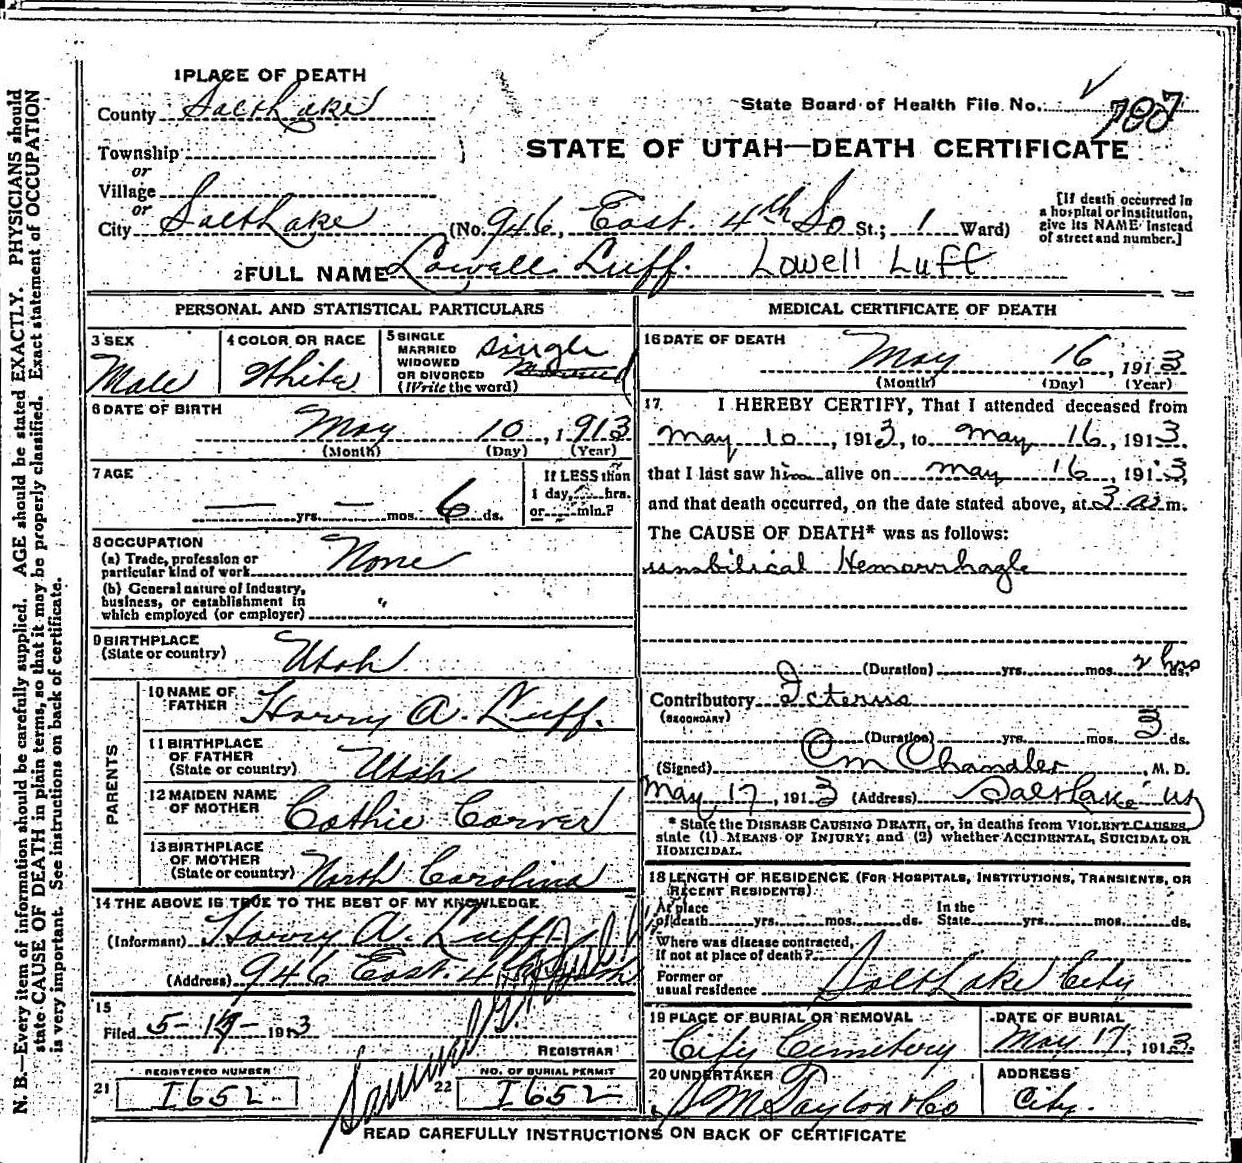 1 PLACE OF DEATH
County Salt Lake
State Board of Health File No. 787
Township
or
STATE OF UTAH—DEATH CERTIFICATE
Village
or
City Salt Lake (No. 946, East. 4th So St.; 1 Ward)
[If death occurred in a hospital or institution, give its NAME instead of street and number.]
2 FULL NAME Lowell Luff. Lowell Luff
PERSONAL AND STATISTICAL PARTICULARS
3 SEX
Male
4 COLOR OR RACE
White
5 SINGLE
MARRIED
WIDOWED
OR DIVORCED
(Write the word)
Single
6 DATE OF BIRTH
May 10, 1913
(Month) (Day) (Year)
7 AGE
— yrs. — mos. 6 ds.
If LESS than
1 day, hrs.
or min.?
8 OCCUPATION
(a) Trade, profession or
particular kind of work None
(b) General nature of Industry,
business, or establishment in
which employed (or employer) "
9 BIRTHPLACE
(State or country) Utah
PARENTS
10 NAME OF
FATHER Harry A. Luff.
11 BIRTHPLACE
OF FATHER
(State or country) Utah
12 MAIDEN NAME
OF MOTHER Cathie Carver
13 BIRTHPLACE
OF MOTHER
(State or country) North Carolina
14 THE ABOVE IS TRUE TO THE BEST OF MY KNOWLEDGE
(Informant) Harry A. Luff
(Address) 946 East. 4th
15
Filed 5-17-1913
REGISTRAR
REGISTERED NUMBER
21 I652
NO. OF BURIAL PERMIT
22 I652
MEDICAL CERTIFICATE OF DEATH
16 DATE OF DEATH
May 16, 1913
(Month) (Day) (Year)
17 I HEREBY CERTIFY, That I attended deceased from
May 10, 1913, to May 16, 1913.
that I last saw him alive on May 16, 1913,
and that death occurred, on the date stated above, at 3 a.m.
The CAUSE OF DEATH* was as follows:
umbilical Hemorrhagle
(Duration) yrs. mos. 2 hrs ds.
Contributory Icterus
(SECONDARY)
(Duration) yrs. mos. 3 ds.
(Signed) O M Chandler, M. D.
May, 17, 1913 (Address) Salt Lake Ut
* State the DISEASE CAUSING DEATH, or, in deaths from VIOLENT CAUSES,
state (1) MEANS OF INJURY; and (2) whether ACCIDENTAL, SUICIDAL OR
HOMICIDAL.
18 LENGTH OF RESIDENCE (FOR HOSPITALS, INSTITUTIONS, TRANSIENTS, OR
RECENT RESIDENTS).
At place
of death yrs. mos. ds.
In the
State yrs. mos. ds.
Where was disease contracted,
if not at place of death?
Former or
usual residence Salt Lake City
19 PLACE OF BURIAL OR REMOVAL
City Cemetery
DATE OF BURIAL
May 17, 1913
20 UNDERTAKER
S M Taylor & Co
ADDRESS
City.
READ CAREFULLY INSTRUCTIONS ON BACK OF CERTIFICATE
N. B.—Every item of information should be carefully supplied. AGE should be stated EXACTLY. PHYSICIANS should
state CAUSE OF DEATH in plain terms, so that it may be properly classified. Exact statement of OCCUPATION
is very important. See instructions on back of certificate.